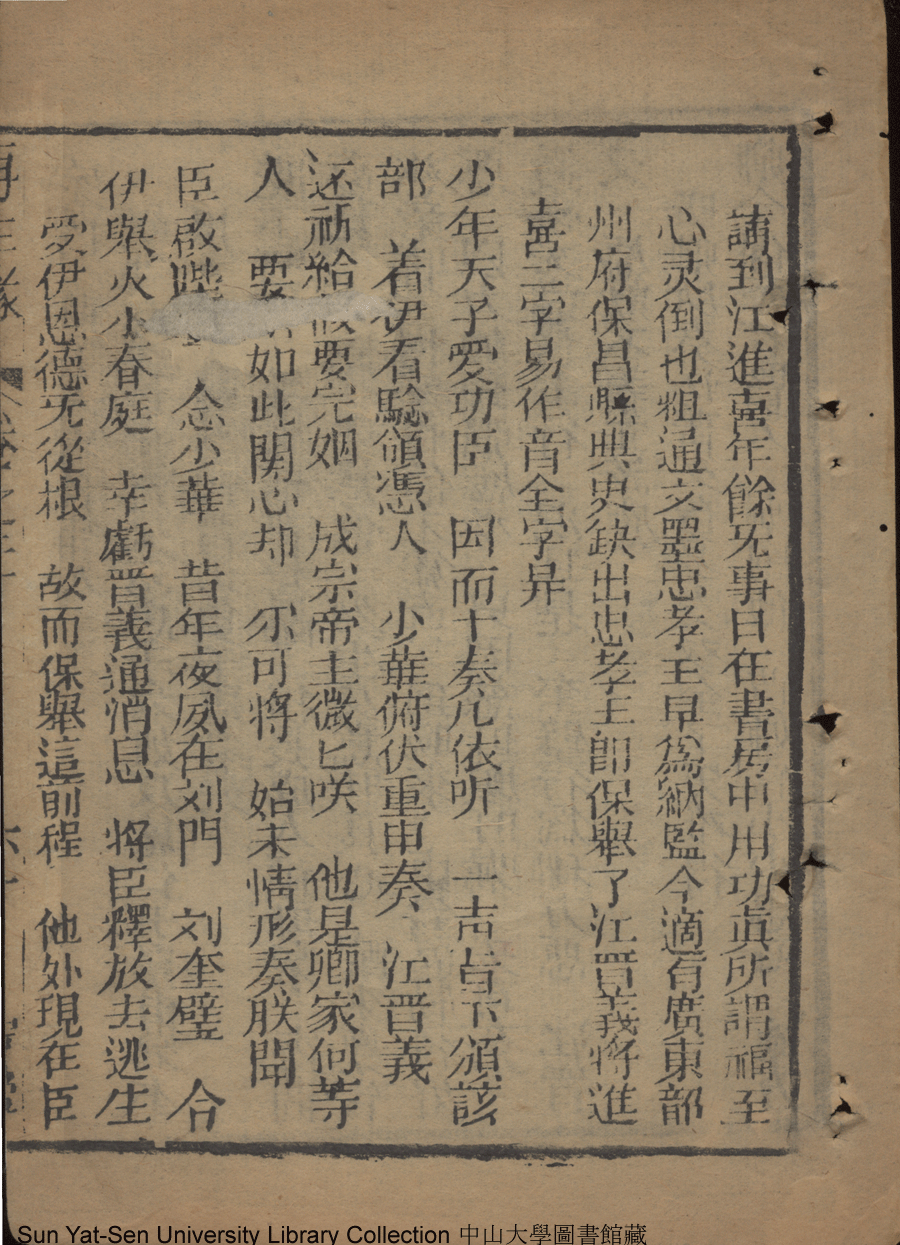 請到江進喜年餘旡事日在書房中用功真所謂福至
心灵倒也粗通文墨忠孝王早為納監今適有廣東韶
州府保昌縣典史缺出忠孝王即保舉了江晋義將進
喜二字易作音全字昇
少年天子愛功臣 因而十奏九依听 一声旨下頒該
部 着伊看驗領憑人 少華俯伏重申奏 江晋義
还祈給假要完姻 成宗帝主微匕咲 他是卿家何等
人 要 如此関心却 尔可將 始末情形奏朕聞
臣啟陛 念少華 昔年夜夙在刘門 刘奎璧 合
伊舉火小春庭 幸虧晋義通消息 將臣釋放去逃生
受伊恩德旡從根 故而保舉這前程 他处現在臣
再生緣
Sun Yat-Sen University Library Collection 中山大學圖書館藏